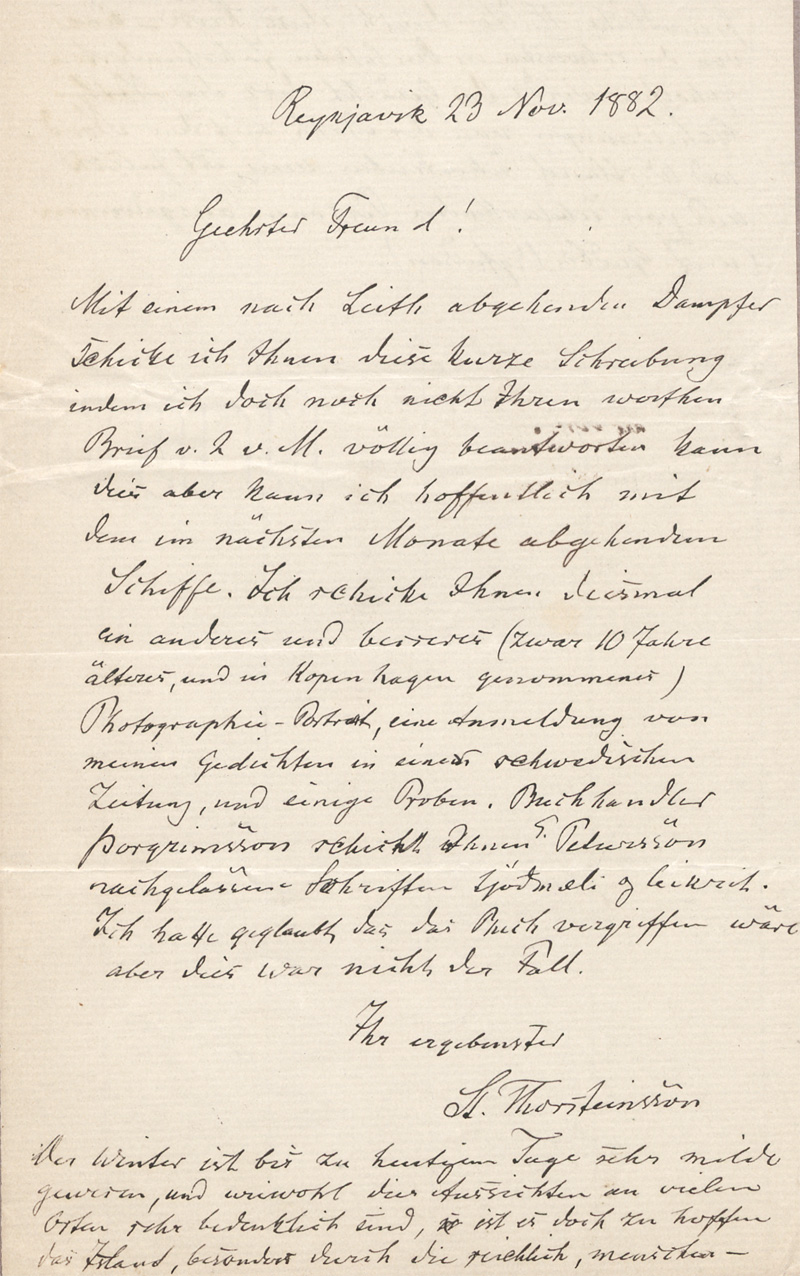 Reynjavik 23 Nov. 1882.
Geehrter Freund!
Mit einem nach Leith abgehenden Dampfer
schicke ich Ihnen diese kurze Schreibung
indem ich doch noch nicht Ihren werthen
Brief v. 2 v. M. völlig beantworten kann
dies aber kann ich hoffentlich mit
dem im nächsten Monate abgehendem
Schiffe. Ich schicke Ihnen diesmal
ein anderes und besseres (zwar 10 Jahre
älteres, und in Kopenhagen genommenes)
Photographie-Porträt, eine Anmeldung von
meinen Gedichten in einer schwedischen
Zeitung, und einige Proben. Buchhandler
Þorgrimsson schickt Ihnen Petursson
nachgelassene Schriften Ljódmæli og leikrit.
Ich hatte geglaubt das das Buch vergriffen wäre
aber dies war nicht der Fall.
Ihr ergebenster
St. Thorsteinsson
Der Winter ist bis zu heutigem Tage sehr milde
gewesen, und wiewohl die Aussichten an vielen
Orten sehr bedenklich sind, so ist es doch zu hoffen
das Island, besonders durch die reichlich, menschen-